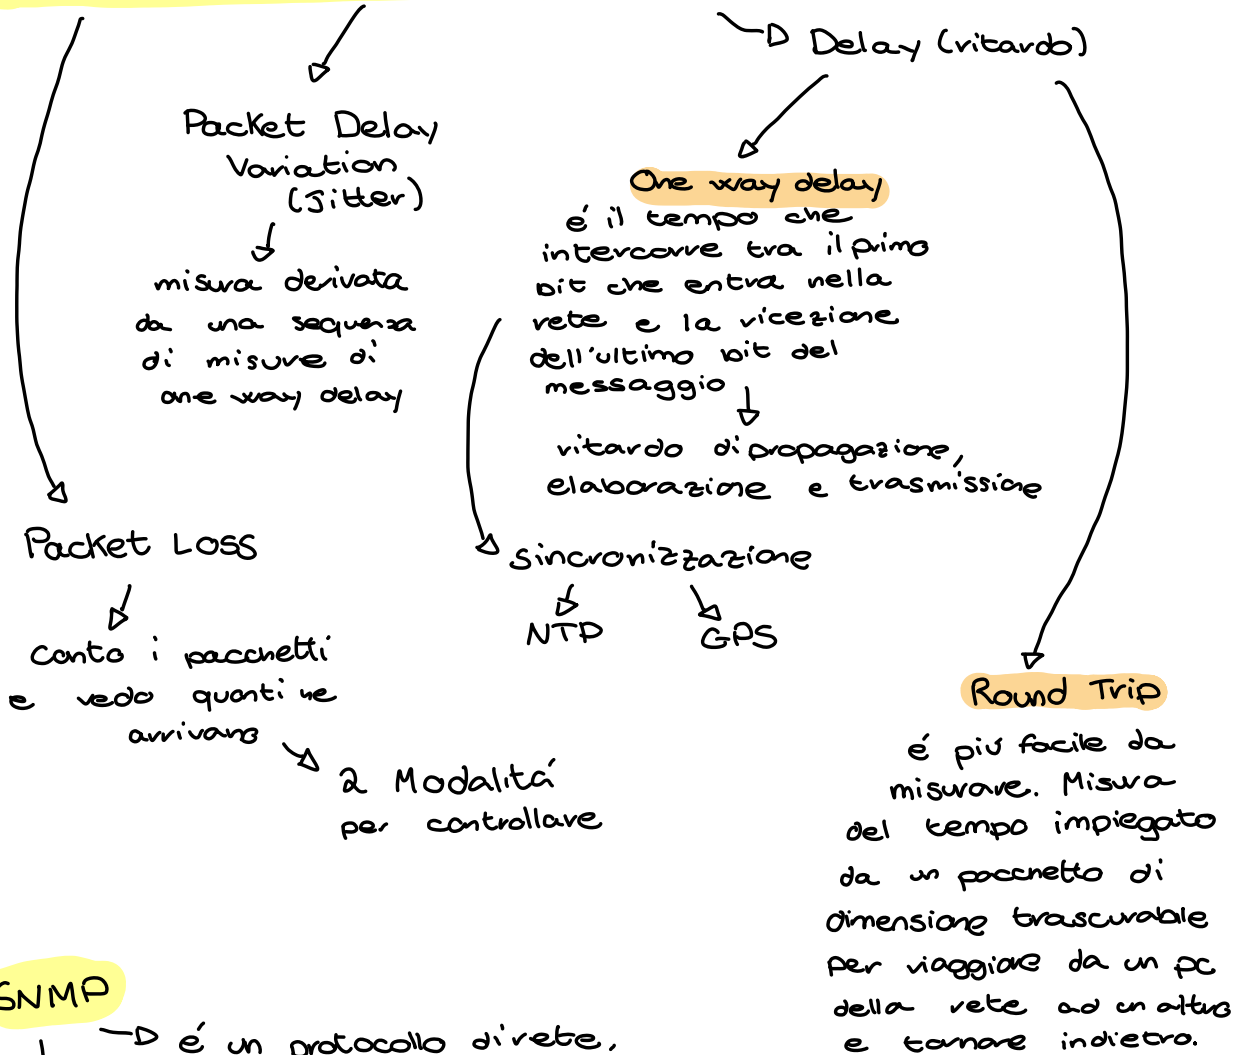 Delay (ritardo)
Packet Delay
Variation
(Jitter)
misura derivata
da una sequenza
di misure di
one way delay
One way delay
é il tempo che
intercorre tra il primo
bit che entra nella
rete e la ricezione
dell'ultimo bit del
messaggio
ritardo di propagazione,
elaborazione e trasmissione
sincronizzazione
NTP
GPS
Packet Loss
conto i pacchetti
e vedo quanti ne
arrivano
2 Modalitá
per controllare
Round Trip
é piú facile da
misurare. Misura
del tempo impiegato
da un pacchetto di
dimensione trascurabile
per viaggiare da un pc
della rete ad un altro
e tornare indietro.
SNMP
é un protocollo di rete,